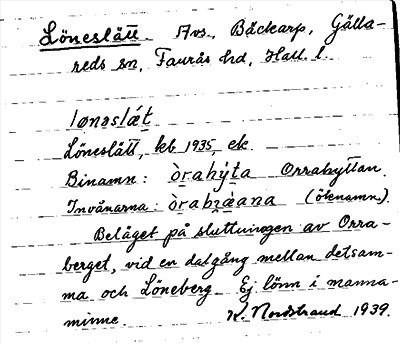 Löneslätt. Avs., Bäckarp, Gälla-
reds sn, Faurås hd, Hall. l.
lønəslǽt
Löneslätt, kb 1935, ek.
Binamn: òrahýta Orrahyttan.
Invånarna: òrabràana (öknamn).
Beläget på sluttningen av Orra-
berget, vid en dalgång mellan detsam-
ma och Löneberg. Ej lönn i manna-
minne. K. Nordstrand 1939.